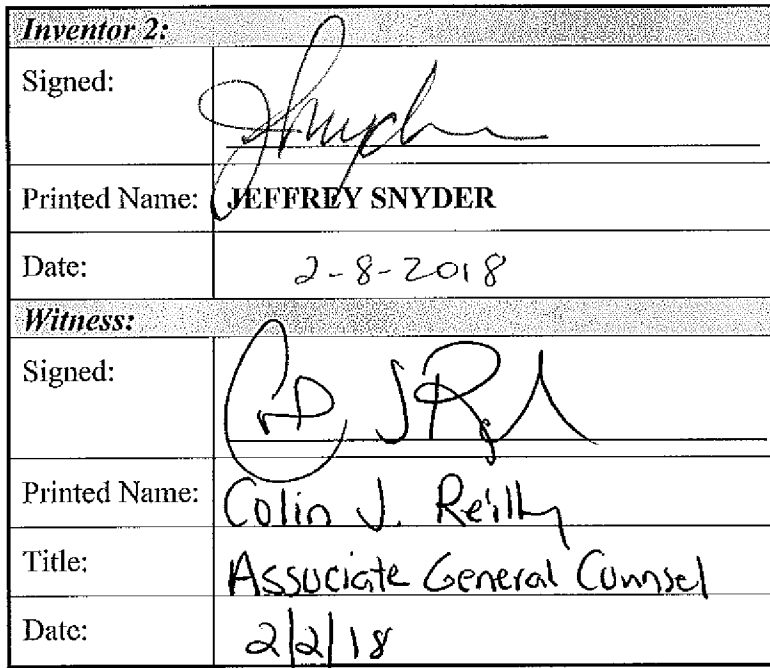 Inventor 2:
Signed:
Printed Name: JEFFREY SNYDER
Date: 2-8-2018
Witness:
Signed:
Printed Name: Colin J. Reilly
Title: Associate General Counsel
Date: 2/2/18